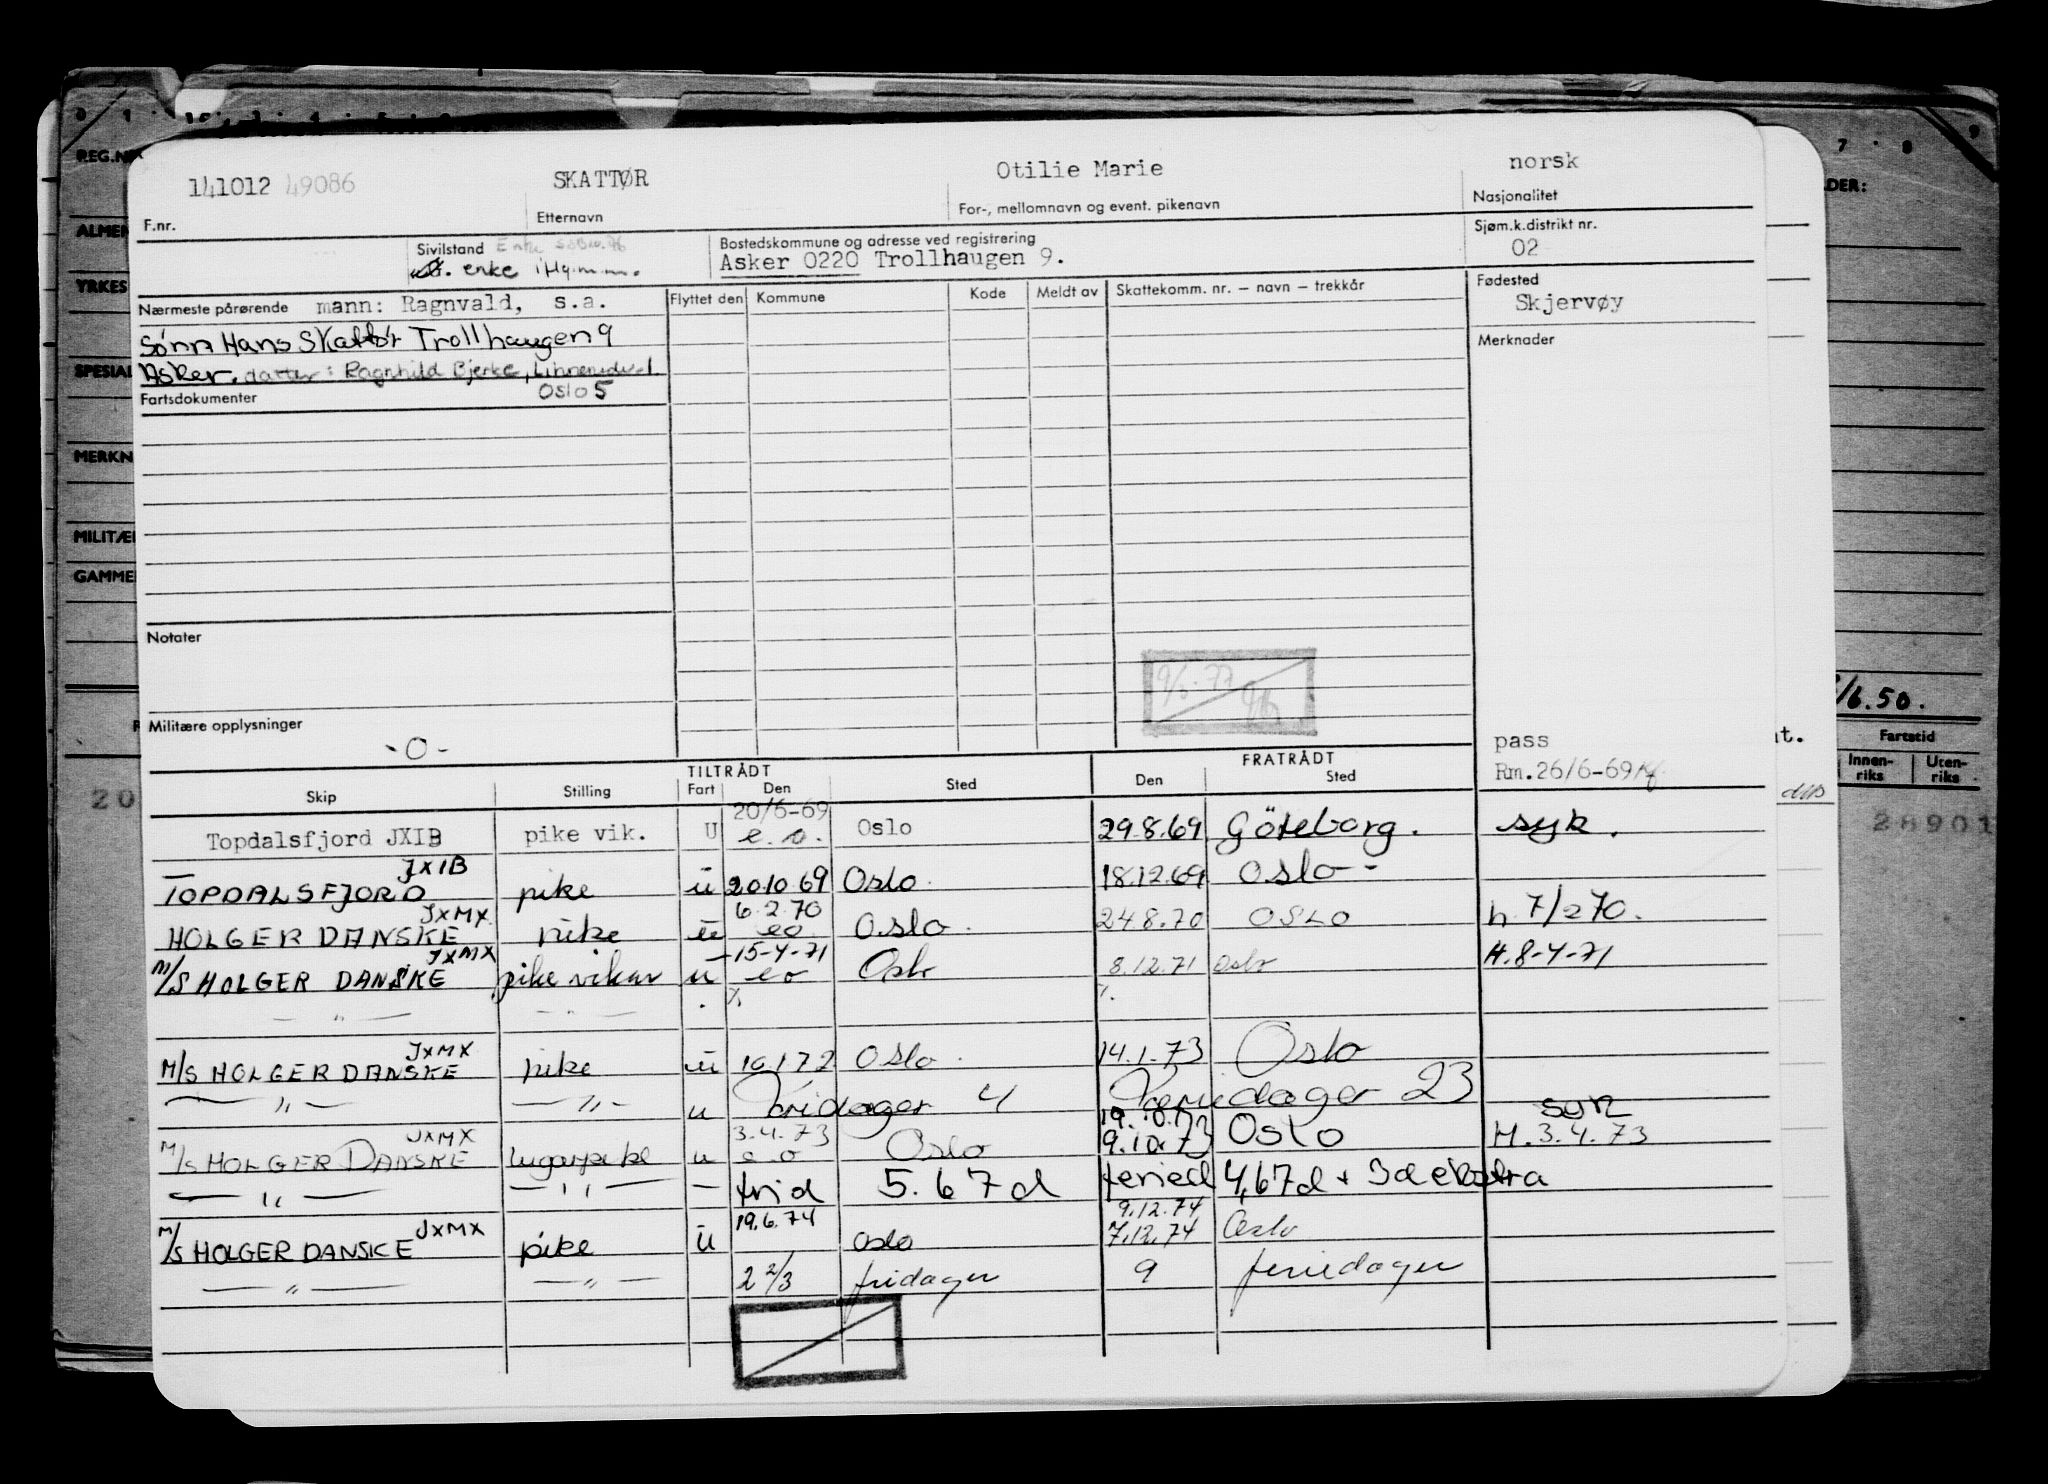 REG.NR
ALMEN
YRKES
SPESIAL
MERKN
MILITÆ
GAMME
141012 49086
SKATTØR
Otilie Marie
norsk
F.nr.
Etternavn
For-, mellomnavn og event. pikenavn
Nasjonalitet
Sivilstand
enke
Bostedskommune og adresse ved registrering
Asker 0220 Trollhaugen 9.
Sjøm.k.distrikt nr.
02
Nærmeste pårørende mann: Ragnvald, s.a.
Sønn Hans Skattør Trollhaugen 9
Asker. datter: Ragnhild Bjerke,
Oslo 5
Flyttet den Kommune Kode Meldt av Skattekomm. nr. — navn — trekkår
Fødested
Skjervøy
Merknader
Fartsdokumenter
Notater
Militære opplysninger
-O-
pass
Rm.26/6-69
TILTRÅDT FRATRÅDT
Skip Stilling Fart Den Sted Den Sted
Topdalsfjord JXIB pike vik. U 20/6-69 e.o. Oslo 29.8.69 Göteborg. syk.
TOPDALSFJORD JXIB pike u 20.10.69 Oslo. 18.12.69 Oslo-
HOLGER DANSKE JXMX pike u 6.2.70 eo Oslo. 24.8.70 OSLO h. 7/2 70.
M/S HOLGER DANSKE JXMX pike vikar u 15-4-71 eo Oslo 8.12.71 Oslo H.8-4-71
— " — — " —
M/S HOLGER DANSKE JXMX pike u 10.1.72 Oslo. 14.1.73 Oslo
— " — — " — u Fridager 4 Feriedager 23
M/S HOLGER DANSKE JXMX lugarpike u 3.4.73 e o Oslo 19.10.73 9.10.73 Oslo syk H.3.4.73
— " — — " — — frid 5.67 d feried 4,67d + 3d ekstra
M/S HOLGER DANSKE JXMX pike u 19.6.74 Oslo 9.12.74 7.12.74 Oslo
— " — — " — 2 2/3 fridager 9 feriedager
DER:
/6.50.
nt.
Fartstid
Innen-
riks
Uten-
riks
20
28901